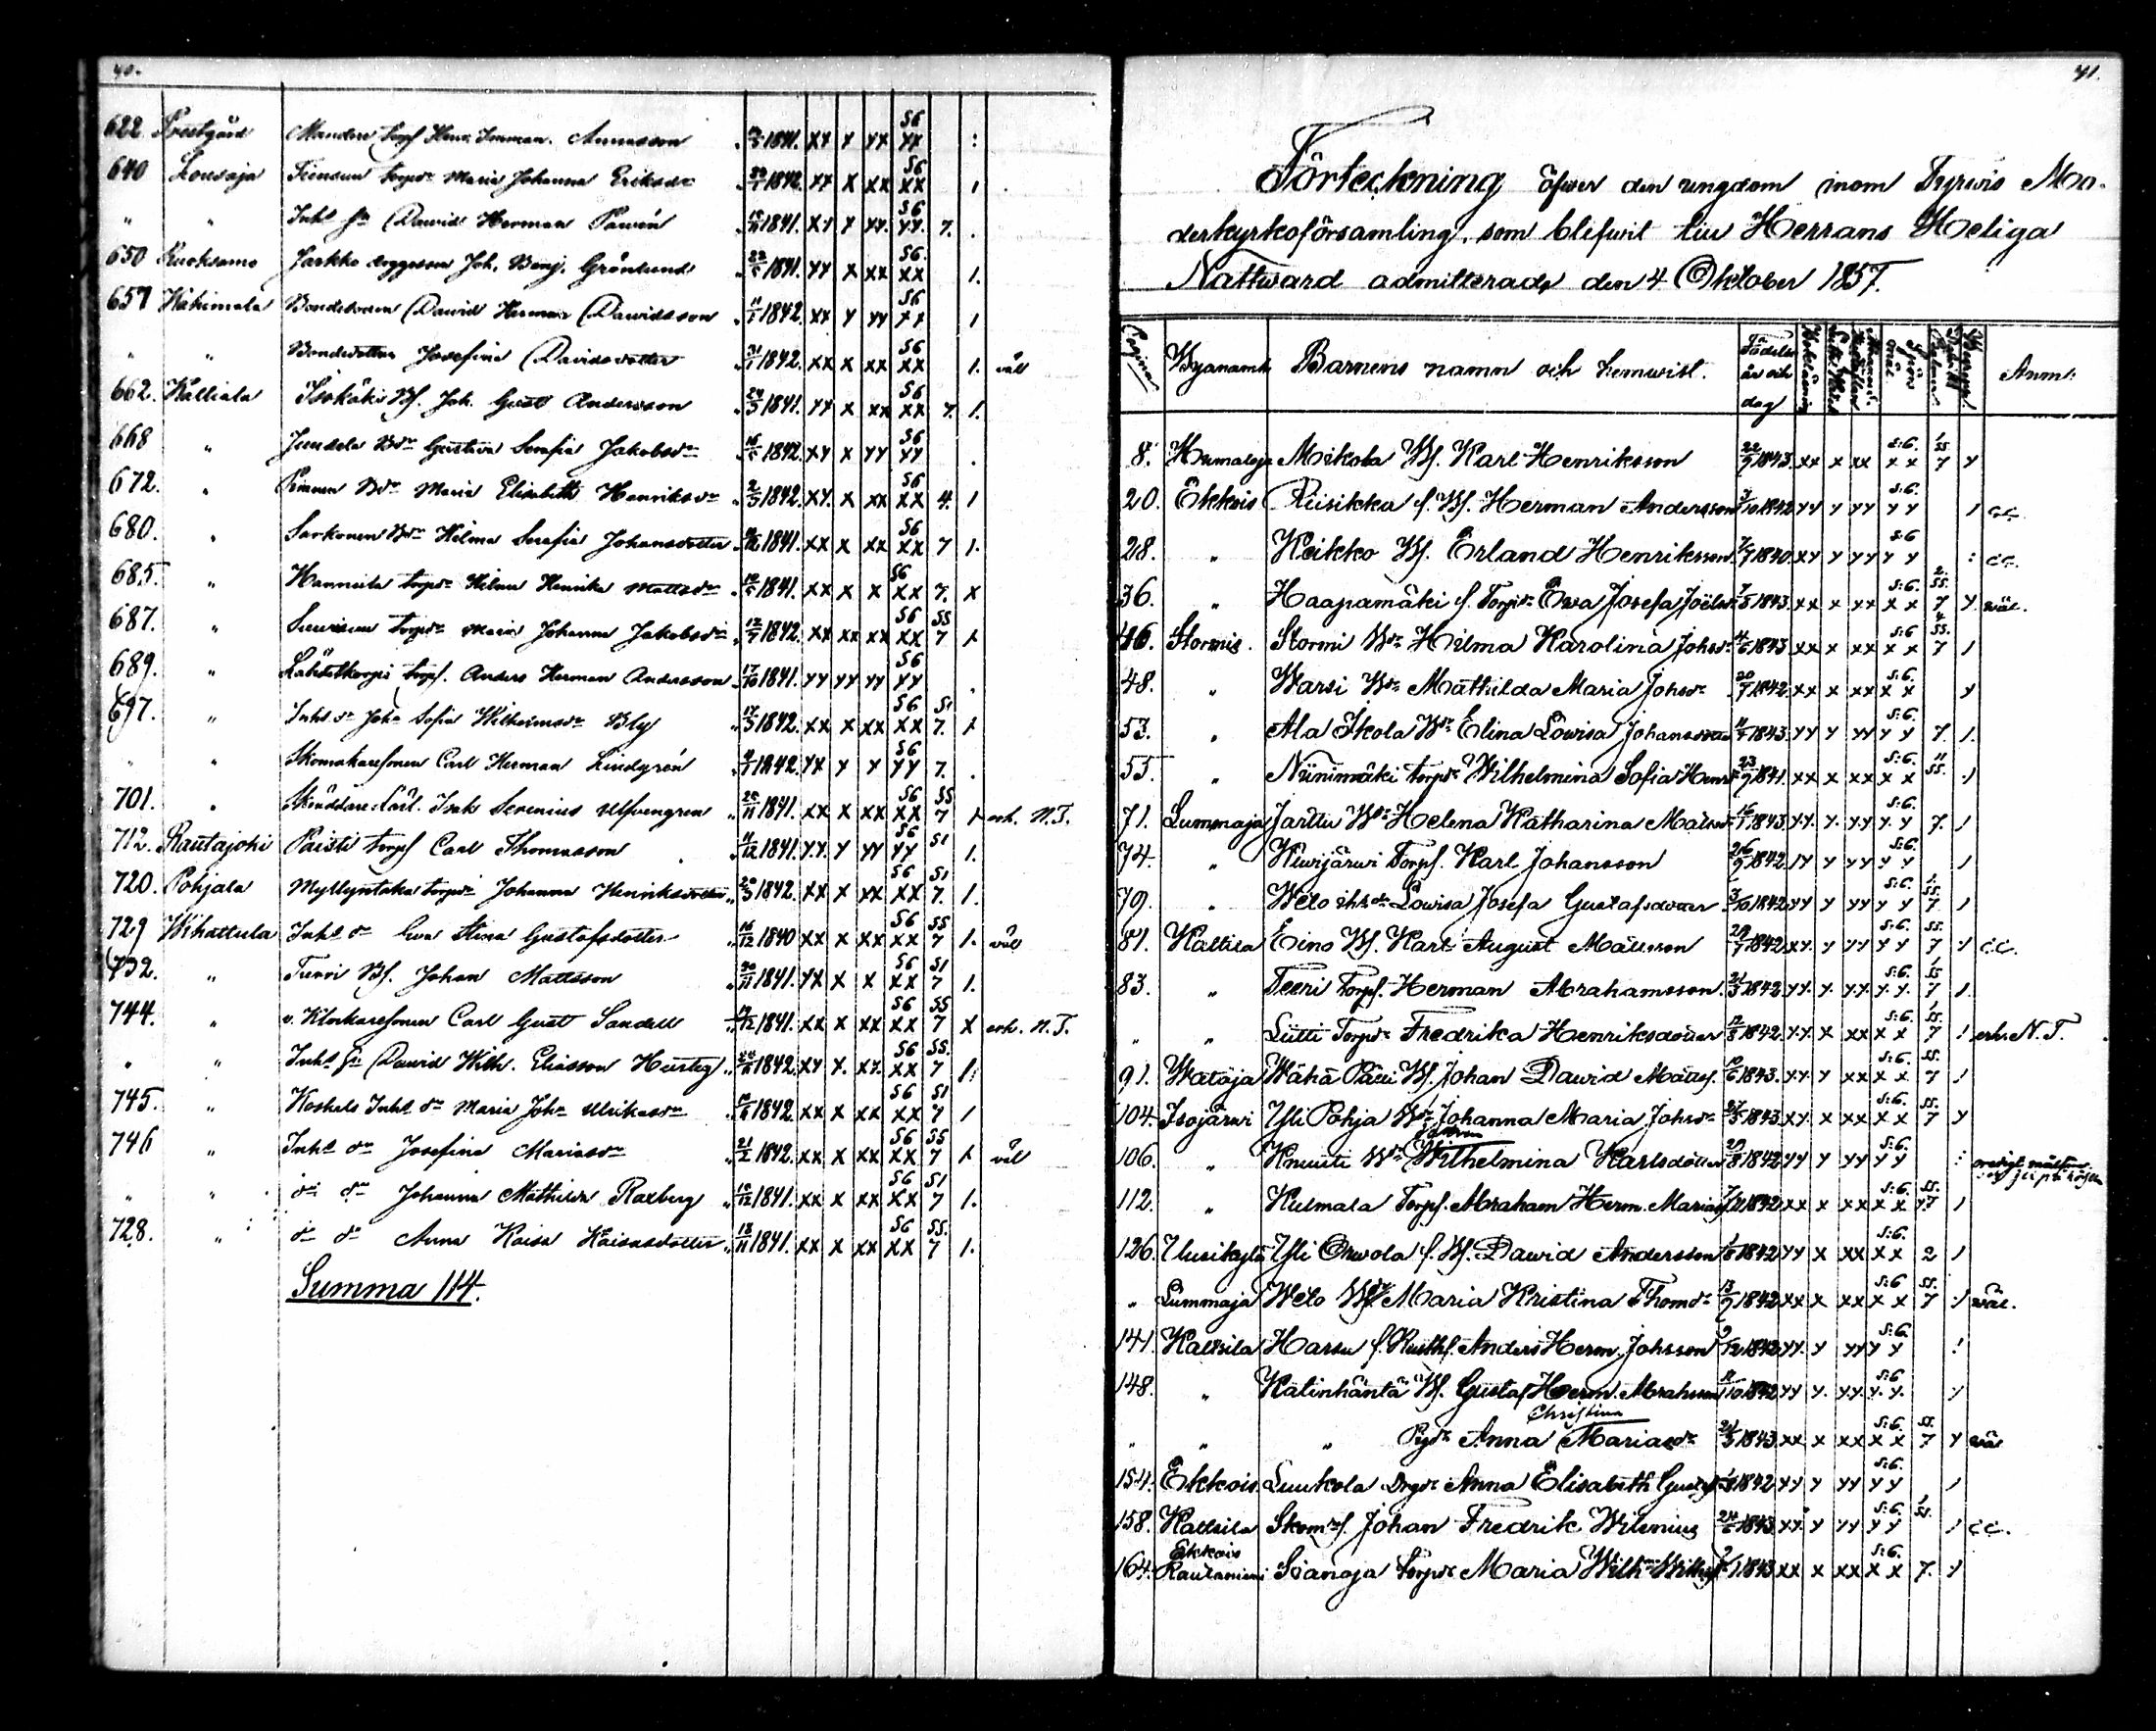 40.
622. Prestgård Manderi torpf Henr. Emman. Annasson 1841. xx x xx S6 xx
640 Lousaja torpdr Maria Johanna Eriksdr 1842. xx x xx S6 xx 1
" " Inhs sn David Herman Pawén 1841. xx x xx. S6 xx. 7. .
650 Ruoksamo Jarkko Joh. Benj. Grönlund 1841. xx x xx S6. xx 1.
657 Häkimala Bondesonen David Herman Davidsson 11/1 1842. xx x xx S6 xx 1
" " Bondedottren Josefina Davidsdotter 31/1 1842. xx x xx S6 xx 1. väl
662. Kalliala Isokäki Bf. Joh. Gust Andersson 24/3 1841. xx x xx S6 xx 7. 1.
668 " Jundela Bdr Gustava Serafia Jakobsdr 16/5 1842. xx x xx S6 xx .
672. " Bdr Maria Elisabeth Henriksdr 2/3 1842. xx. x xx S6 xx 4. 1
680. " Sarkonen Bdr Hilma Serafia Johansdotter 1841. xx x xx S6 xx 7 1.
685. " Hannula torpdr Hilma Henrika Mattsdr 1841. xx x x S6 xx 7. x
687. " torpdr Maria Johanna Jakobsdr 12/7 1842. xx xx xx S6 xx SS 7 1
689. " Lähdetkorpi torpf. Anders Herman Andersson 17/10 1841. xx xx xx S6 xx .
697. " Inhs dr Joha Sofia Wilhelmsdr Bly 17/3 1842. xx x xx S6 xx S1 7. 1
" " Skomakaresonen Carl Herman Lindgrén 1842 xx x x S6 xx 7. .
701. " Skräddare Lärl. Isak Serenius Ulfvengren 20/11 1841. xx x xx S6 xx SS 7 1 erh. N.T.
712. Rautajoki Paisti torpf Carl Thomasson 11/12 1841. xx. x xx S6 xx S1 1.
720. Pohjala Myllyntaka torpdr Johanna Henriksdotter 20/3 1842. xx x xx S6 xx S1 7. 1.
729 Wihattula Inhs dr Eva Stina Gustafsdotter 16/12 1840 xx x xx S6 xx SS 7 1. väl
732. " Turri Bf. Johan Mattsson 20/11 1841. xx x x S6 xx S1 7 1.
744. " v. Klockaresonen Carl Gust Sandell 1841. xx x. xx S6 xx SS 7 x erh. N.T.
" " Inhs sn David Wilh. Eliasson Hurtig 1842. xx x. xx. S6 xx SS. 7 1.
745. " Koskela Inhs dr Maria Joha Ulriksdr 1842 xx x xx S6 xx S1 7 1
746 " Inhs dr Josefina Mariasdr 21/2 1842. xx x xx S6 xx SS 7 1 väl
" " do dr Johanna Mathilda Raxberg 1841. xx x xx S6 xx S1 7 1.
728. " do dr Anna Kaisa Kaisasdotter 13/11 1841. xx x xx S6 xx SS. 7 1.
Summa 114.
41.
Förteckning öfwer den ungdom inom Tyrwis Mo-
derkyrkoförsamling, som blifwit till Herrans Heliga
Nattward admitterade den 4 Oktober 1857.
Pagina Byanamn Barnens namn och hemwist. Födelse år och dag Anm:
8. Humaloja Mikola Bf. Karl Henriksson 22/9 1843. xx x xx S:6. xx 1 SS 7 x
20. Ekkois Riisikka f. Bf. Herman Andersson 3/10 1842 xx x xx S:6. xx 1 c.c.
28. " Keikko Bf. Erland Henriksson 7/7 1840 xx x xx S:6 xx : c.c.
36. " Haapamäki f. Torpdr Ewa Josefa Joëlsdr 7/5 1843. xx x xx S:6. xx 2. SS. 7 x wäl.
46. Stormis. Stormi Bdr Hilma Karolina Johsdr 4/6 1843 xx x xx S:6 xx 4 SS. 7 1
48. " Warsi Bdr Mathilda Maria Johsdr 20/7 1842 xx x xx S:6. xx x
53. " Ala Ikola Bdr Elina Lowisa Johansdotter 1843. xx x xx S:6. xx 7. 1.
55. " Niinimäki torpdr Wilhelmina Sofia Henrdr 23/9 1841. xx x xx S:6. xx 11 SS. 1
71. Lummaja Jarttu Bdr Helena Katharina Matsdr 16/1 1843. xx. x. xx S:6. xx 7. 1
74. " Kiwijärwi Torpf. Karl Johansson 26/9 1842 xx x xx S:6. xx 1
79. " Welo Lowisa Josefa Gustafsdotter 3/10 1842 xx x xx S:6. xx 1. SS. 7 1
81. Kaltila Eino Bf. Karl August Mattsson 29/7 1842 xx. x xx S:6. xx SS. 7 x c.c.
83. " Teeri Torpf. Herman Abrahamsson. 21/3 1842 xx. x. xx. S:6. xx. 1 SS 7 1.
" " Liitti Torpdr Fredrika Henriksdotter 12/8 1842. xx. x xx S:6. xx 1 SS. 7 1 erh. N.T.
91. Wataja Wähä Pälli Bf. Johan Dawid Mattsf. 10/6 1843. xx. x xx S:6. xx SS. 7 1
104. Isojärwi Yli Pohja Bdr Johanna Maria Johsdr 27/3 1843. xx. x xx S:6. xx SS. 7 x
106. " Knuuti Bdr Wilhelmina Karlsdotter 29/8 1842 xx x xx S:6. xx :
112. " Kulmala Torpf. Abraham Herm. Mariasf. 1842 xx x xx S:6. xx SS. 7 1
126. Uusikylä Yli Orwola f. Bf. Dawid Andersson 1/8 1842 xx x xx S:6. xx 2 1
" Lummaja Welo Bdr Maria Kristina Thomdr 13/9 1842 xx x xx S:6 xx SS. 7 1 wäl.
141. Kaltsila Harsu f. Rusth. Anders Herm. Johsson 9/12 1842 xx. x xx S:6. xx !
148. " Katinhäntä Bf. Gustaf Herm. Abrahamsson 11/10 1842 xx x. xx. S:6 x.x. x
Christina
" " " Pigdr Anna Mariasdr 24/3 1843. xx x xx S:6. xx SS. 7 x wäl
154. Ekkois Luukola Anna Elisabeth 1842 xx x xx S:6. xx 1
158. Kaltsila Skomrf. Johan Fredrik Wilenius 24/6 1843 xx x xx S:6. xx 1 SS. 1 c.c.
Ekkois
164. Rautaniemi Sianoja Torpdr Maria 1843 xx x xx S:6. xx 7. x